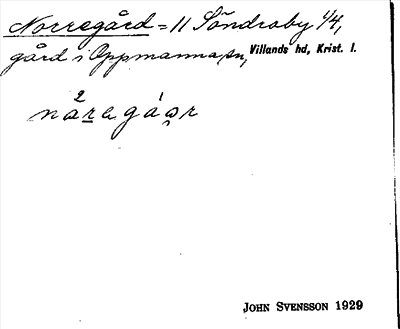 Norregård = 11 Söndraby 1/4,
gård i Oppmanna sn, Villands hd, Krist. l.
JOHN SVENSSON 1929